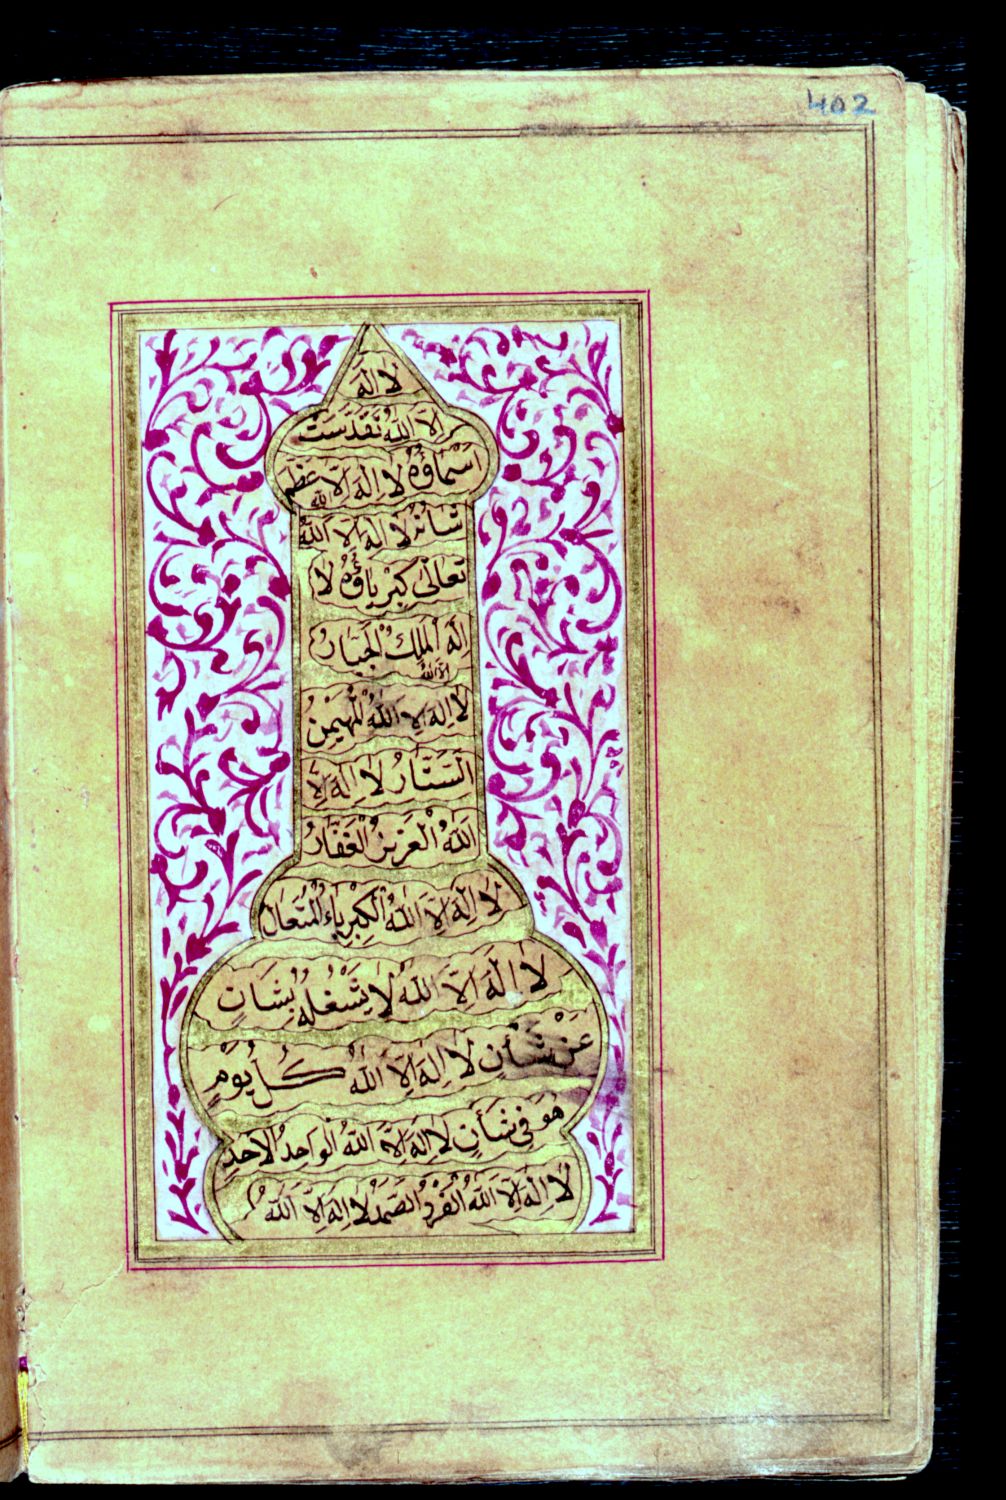 402
لا اله
الا الله تقدست
اسماؤه لا اله الا عظم
الله
شانه لا اله الا الله
تعالى كبرياؤه لا
اله الملك الجبار
الا الله
لا اله الا الله المهيمن
الستار لا اله الا
الله العزيز الغفار
لا اله الا الله الكبرياء المتعال
لا اله الا الله لا يشغله بشان
عن شأن لا اله الا الله كل يوم
هو فى شأن لا اله الا الله الواحد الاحد
لا اله الا الله الفرد الصمد لا اله الا الله